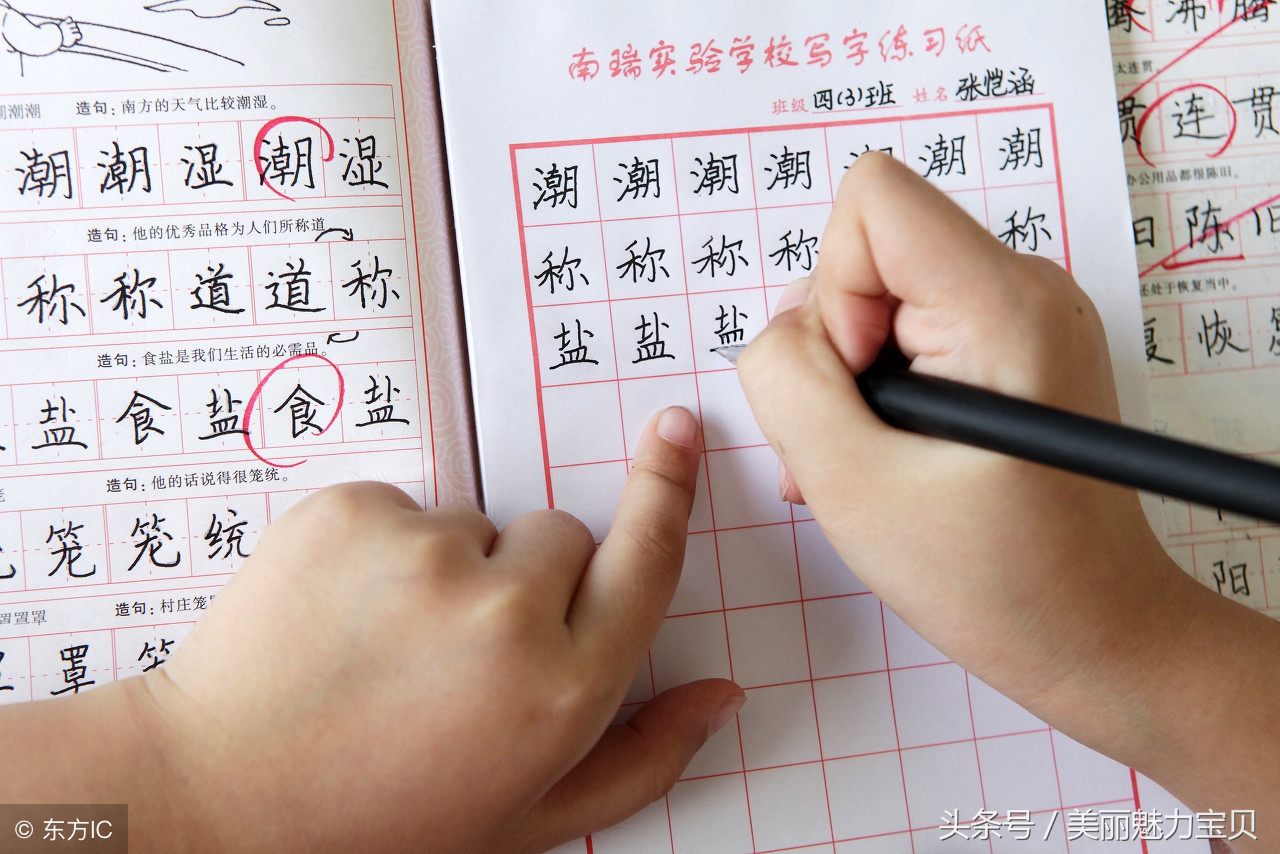 潮潮 造句：南方的天气比较潮湿。
潮潮湿潮湿
造句：他的优秀品格为人们所称道
称称道道称
造句：食盐是我们生活的必需品。
盐食盐食盐
造句：他的话说得很笼统。
笼笼统
罩罩罩 造句：村庄笼
罩
南瑞实验学校写字练习纸
班级 四(3)班 姓名 张恺涵
潮潮潮潮潮潮
称称称称称
盐盐盐
沸腾
太连贯
贯连贯
办公用品都很陈旧。
旧陈旧
还处于恢复当中。
复恢
阳
© 东方IC
头条号 / 美丽魅力宝贝